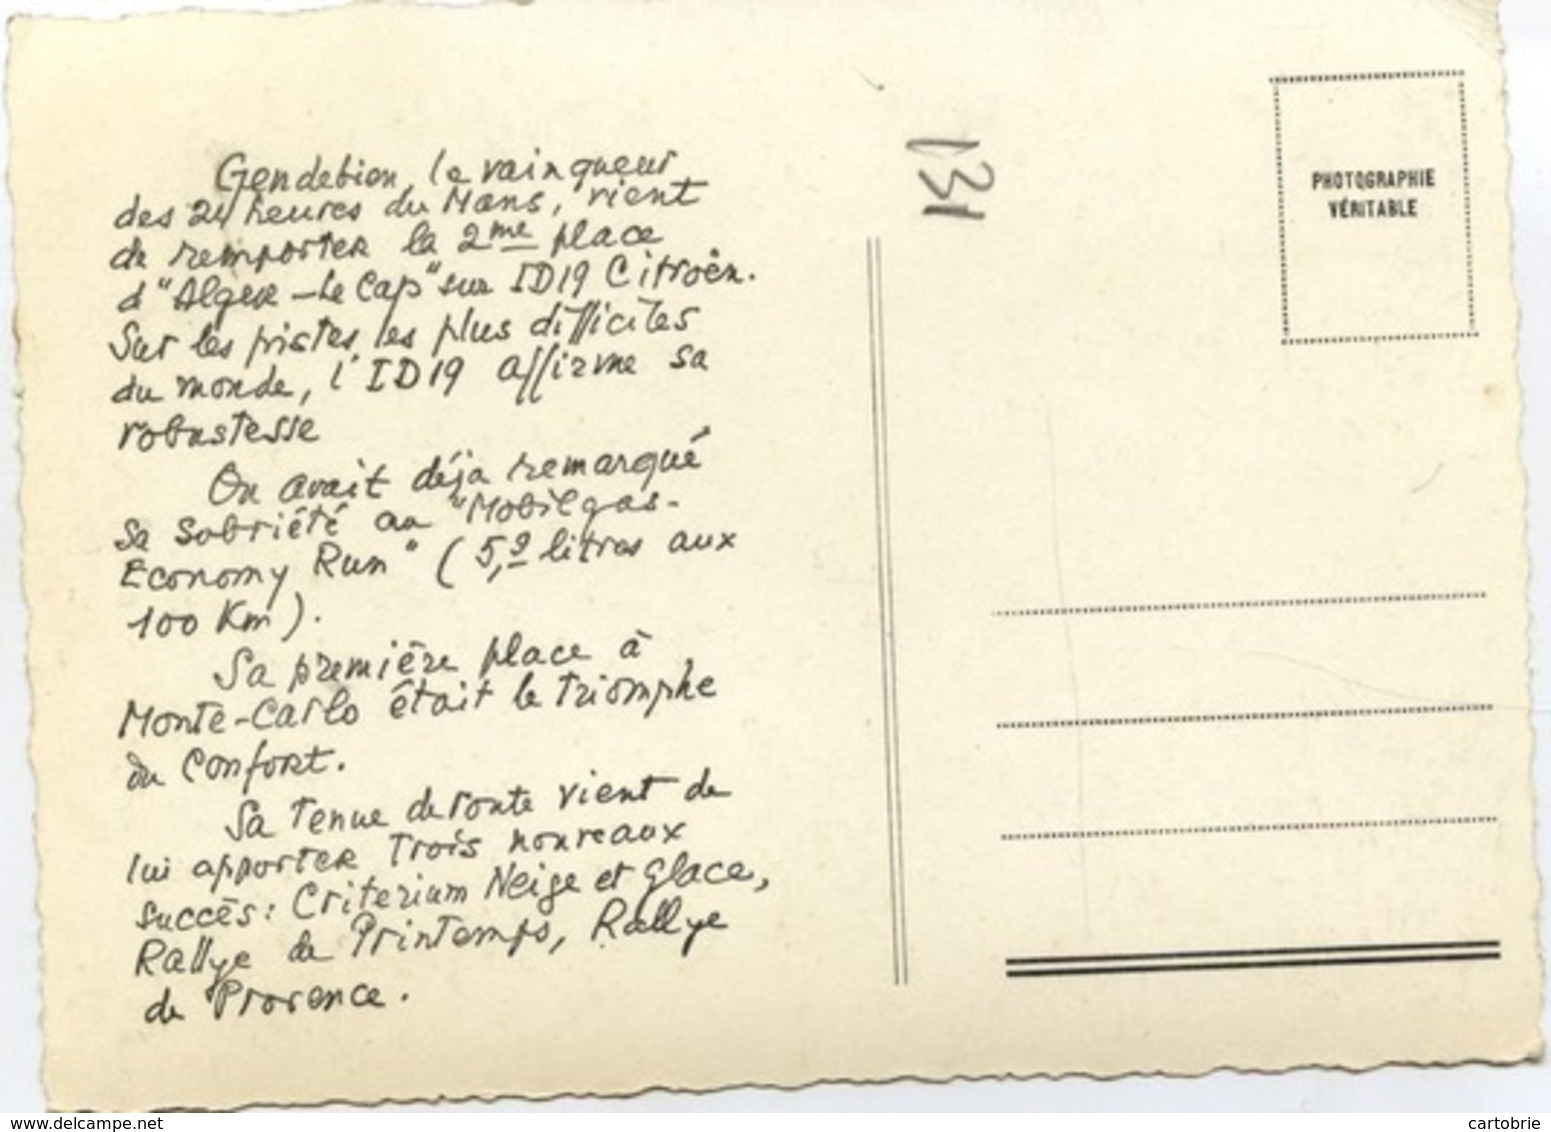 Gendebien, le vainqueur
des 24 heures du Mans, vient
de remporter la 2me place
d'"Alger - Le Cap" sur ID19 Citroën.
Sur les pistes les plus difficiles
du monde, l'ID19 affirme sa
robustesse
On avait déja remarqué
sa sobriété au "Mobilgas-
Economy Run" (5,9 litres aux
100 Km).
Sa première place à
Monte-Carlo était le Triomphe
du Confort.
Sa Tenue de route vient de
lui apporter Trois nouveaux
succès : Criterium Neige et Glace,
Rallye de Printemps, Rallye
de Provence.
131
PHOTOGRAPHIE
VÉRITABLE
www.delcampe.net
cartobrie